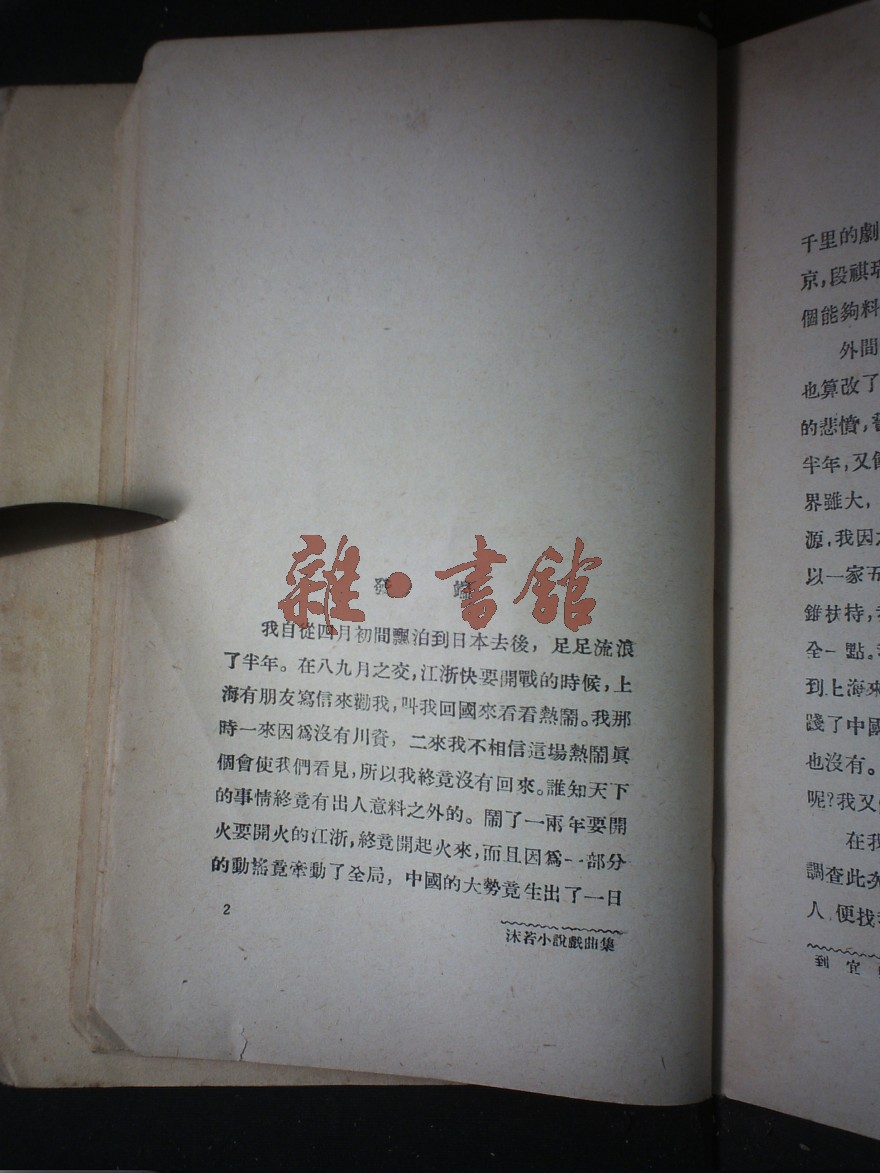 發端
雜·書館
我自從四月初間飄泊到日本去後，足足流浪
了半年。在八九月之交，江浙快要開戰的時候，上
海有朋友寫信來勸我，叫我回國來看看熱鬧。我那
時一來因爲沒有川資，二來我不相信這場熱鬧眞
個會使我們看見，所以我終竟沒有回來。誰知天下
的事情終竟有出人意料之外的。鬧了一兩年要開
火要開火的江浙，終竟開起火來，而且因爲一部分
的動搖竟牽動了全局，中國的大勢竟生出了一日
2
沫若小說戲曲集
千里的劇
京，段祺瑞
個能夠料
外間
也算改了
的悲憤，
半年，又
界雖大，
源，我因
以一家五
錐扶持，
全一點。
到上海來
踐了中國
也沒有。
呢？我又
在我
調查此次
人，便找
到宜